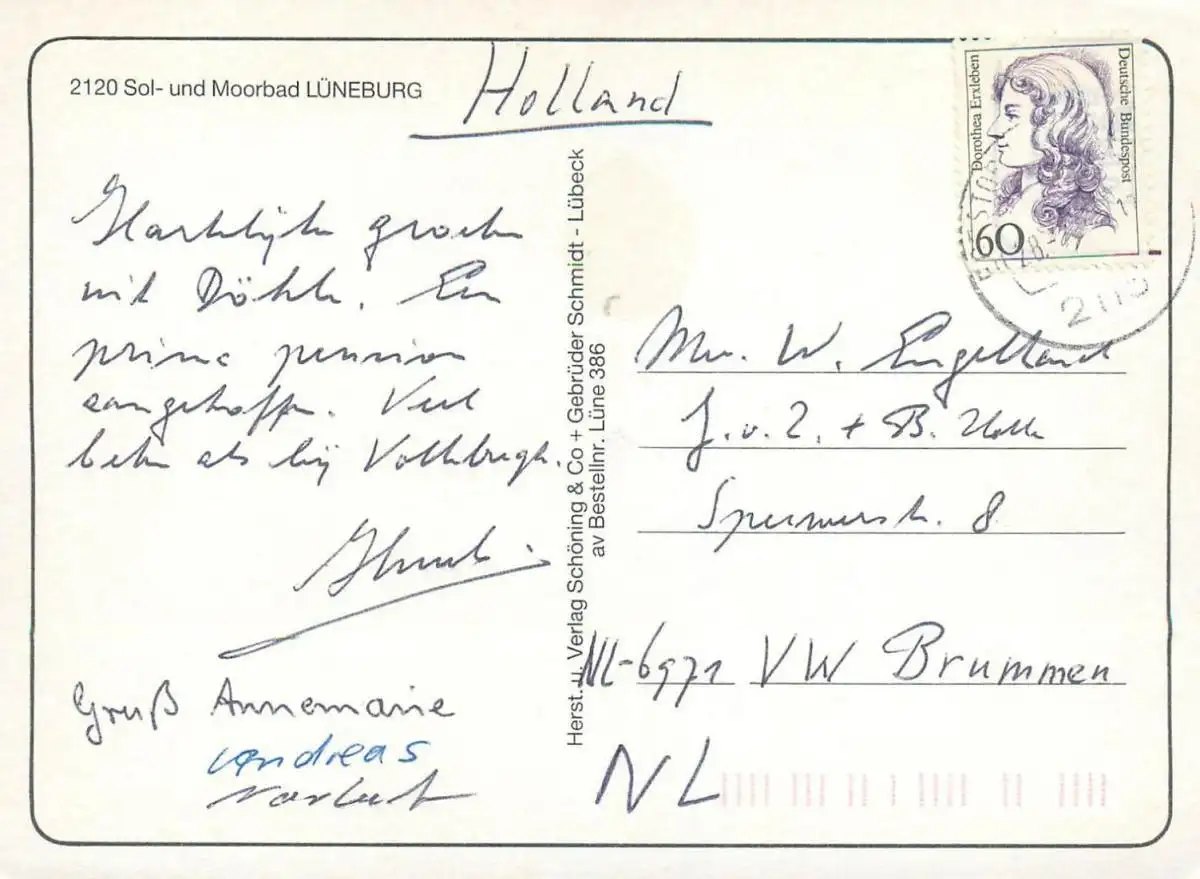 2120 Sol- und Moorbad LÜNEBURG
Holland
Deutsche Bundespost
Dorothea Erxleben
60
2115
Hartelijke groeten
uit Döhle. Een
prima pension
aangetroffen. Veel
beter als bij
Gruß Annemarie
Andreas
Norbert
Herst. u. Verlag Schöning & Co + Gebrüder Schmidt - Lübeck
av Bestellnr. Lüne 386
W. Engelland
J. v. Z. + B.
8
NL-6971 VW Brummen
NL